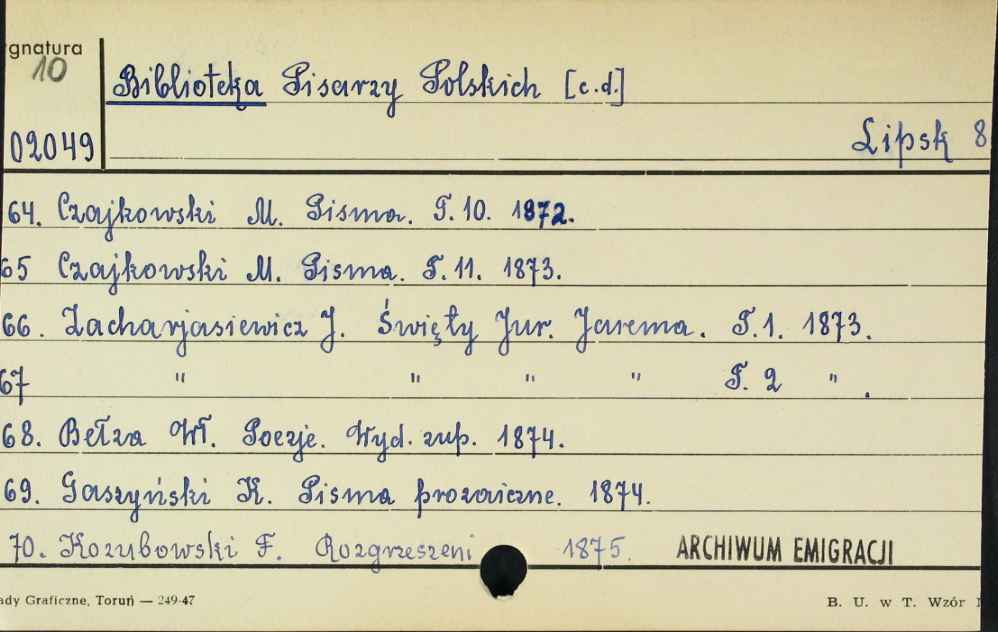 gnatura
10
Biblioteka Pisarzy Polskich [c.d.]
02049
Lipsk 8
64. Czajkowski M. Pisma. T. 10. 1872.
65 Czajkowski M. Pisma. T. 11. 1873.
66. Zacharjasiewicz J. Święty Jur. Jarema. T. 1. 1873.
67 " " " " T. 2 " .
68. Bełza Wł. Poezje. Wyd. zup. 1874.
69. Gaszyński K. Pisma prozaiczne. 1874.
70. Kozubowski F. Rozgrzeszeni 1875. ARCHIWUM EMIGRACJI
ady Graficzne, Toruń — 249-47
B. U. w T. Wzór